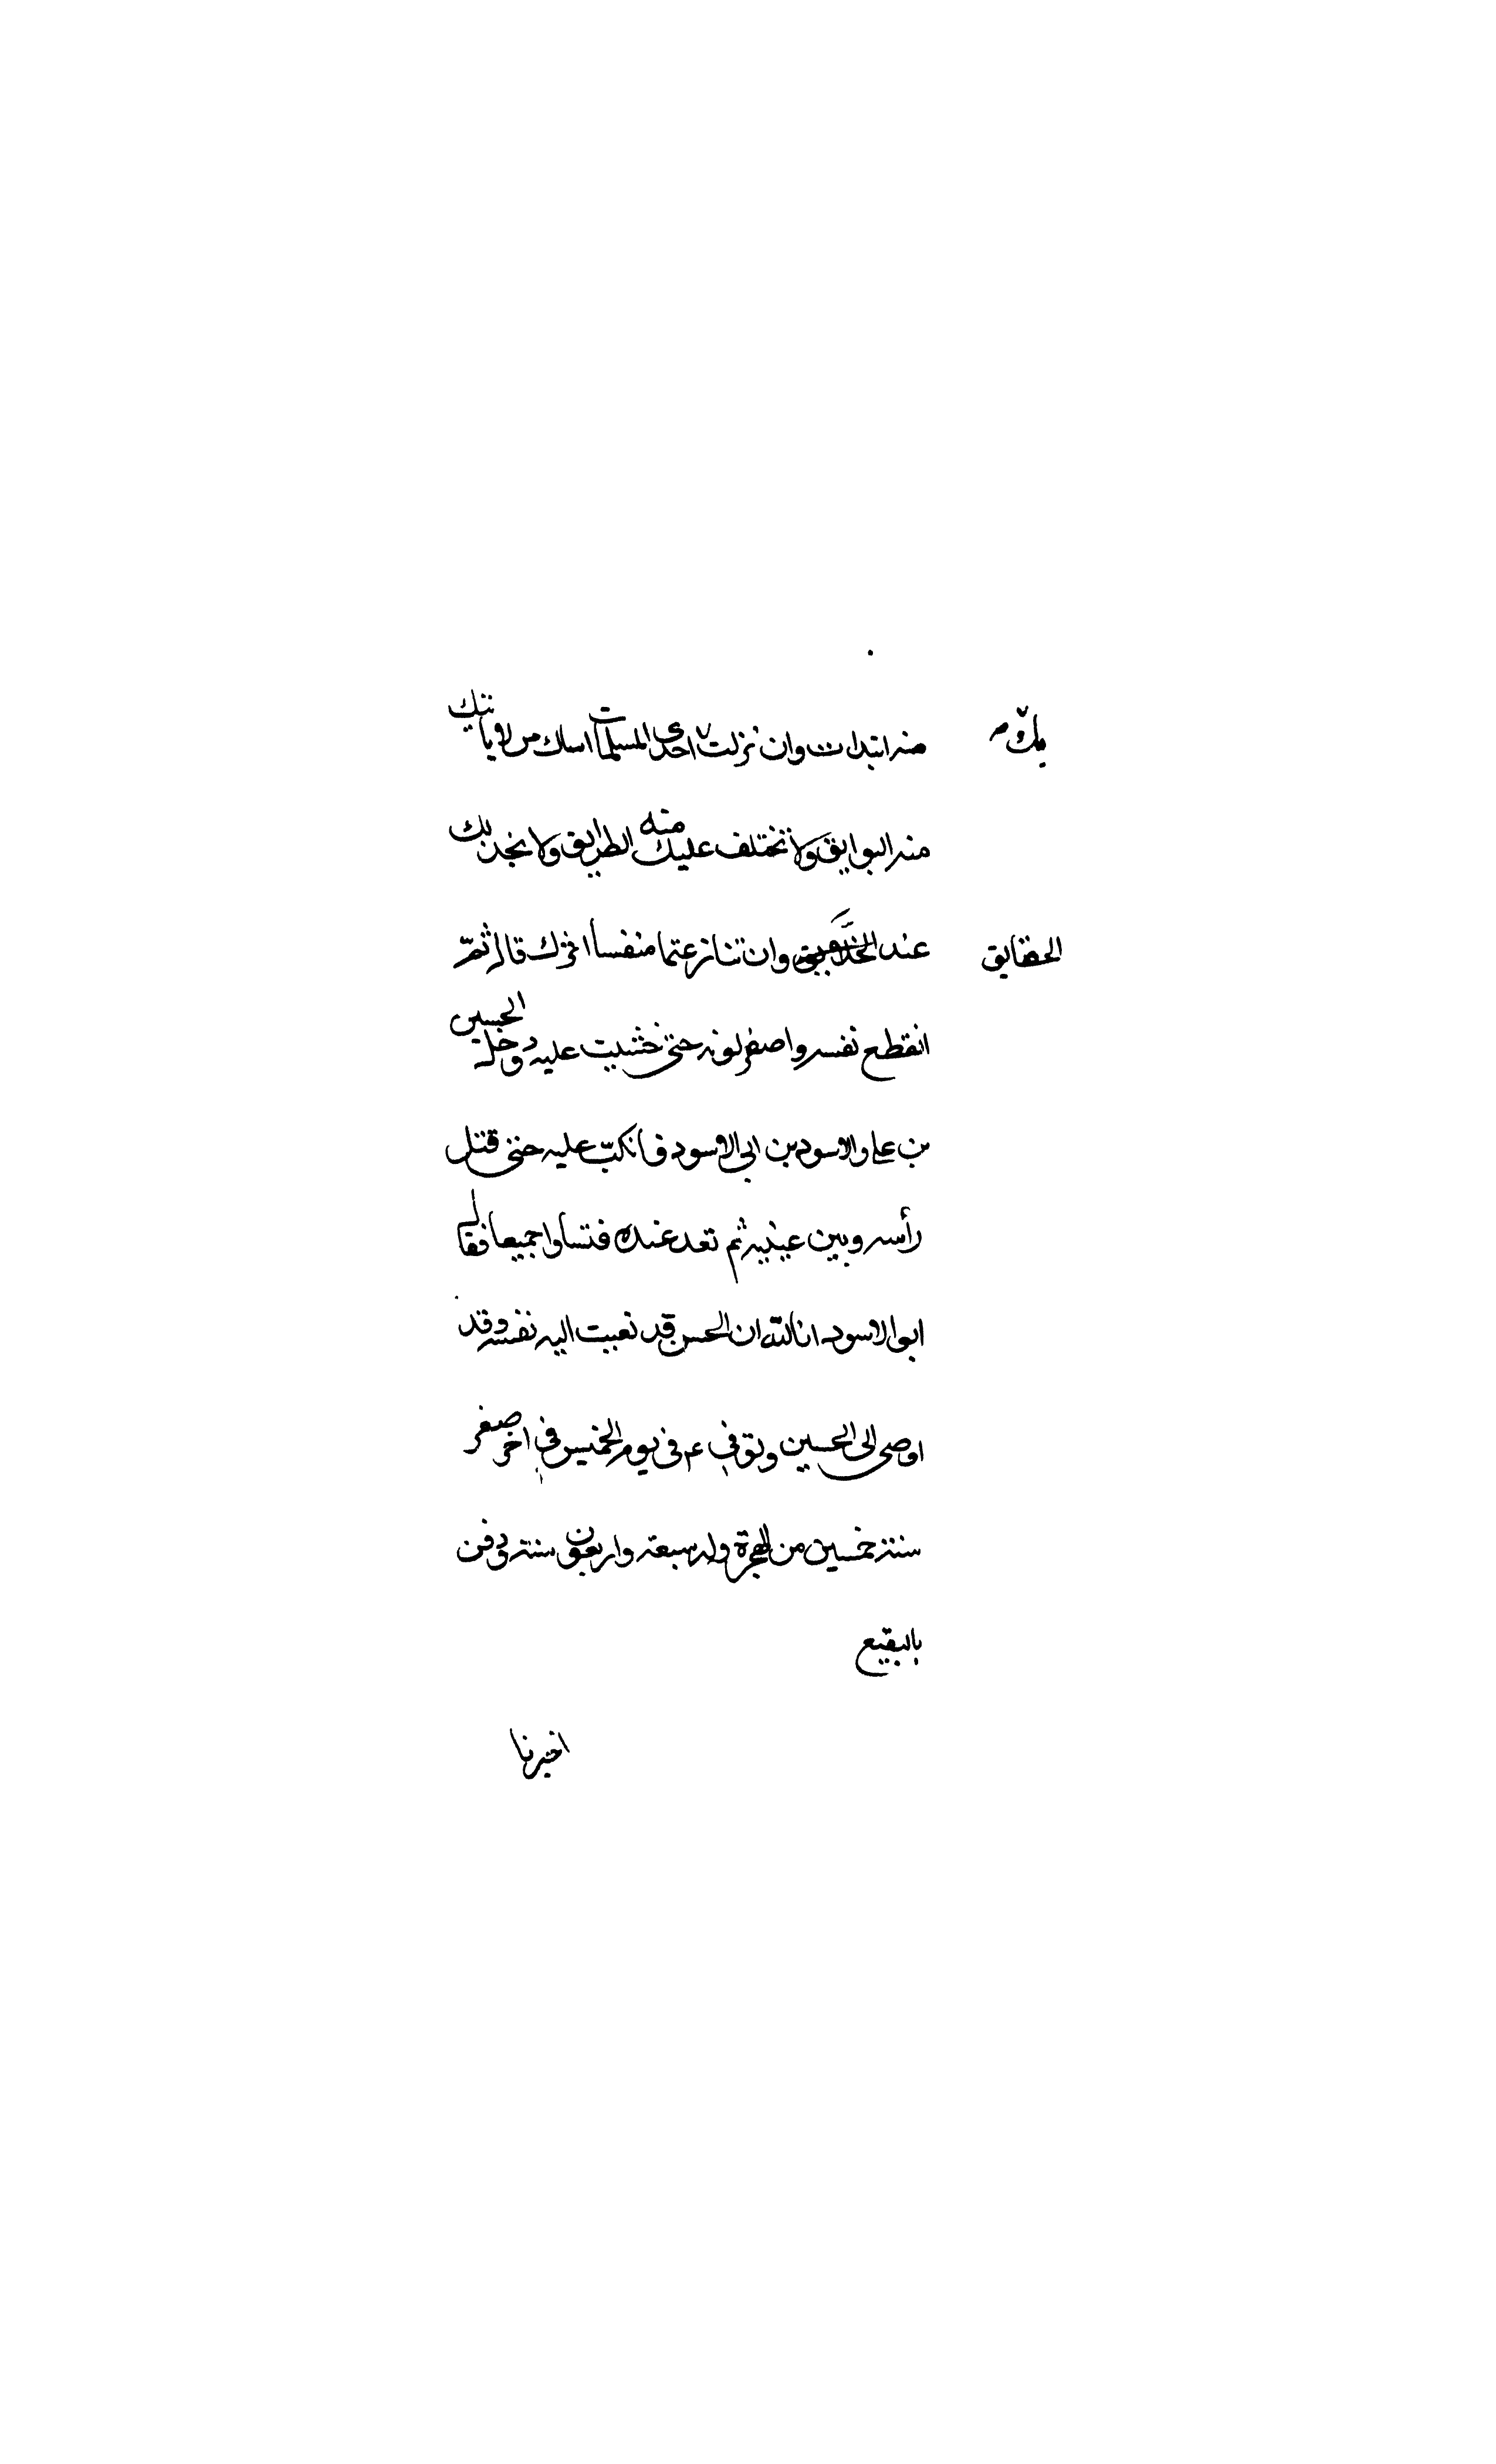 منه ابتداك وان نزلت احدى المسلمات اساك من لا ياتيك
منه البوايق ولا تختلف عليك منه الطرايق ولا يخذلك
عند الحقايق وان تنازعتما منفسا اثرك قال ثمّ
الحقايق
انقطع نفسه واصفر لونه حتى خشيت عليه ودخل الحسين
بن علي والاسود بن ابي الاسود فانكبّ عليه حتى قبّل
رأسه وبين عينيه ثم قعد عنده فتسارا جميعا فقال
ابو الاسود انا لله ان الحسن قد نعيت اليه نفسه وقد
اوصى الى الحسين وتوفي ع في يوم الخميس في اخر صفر
سنة خمسين من الهجرة وله سبعة واربعون سنة ودفن
بالبقيع
اخبرنا